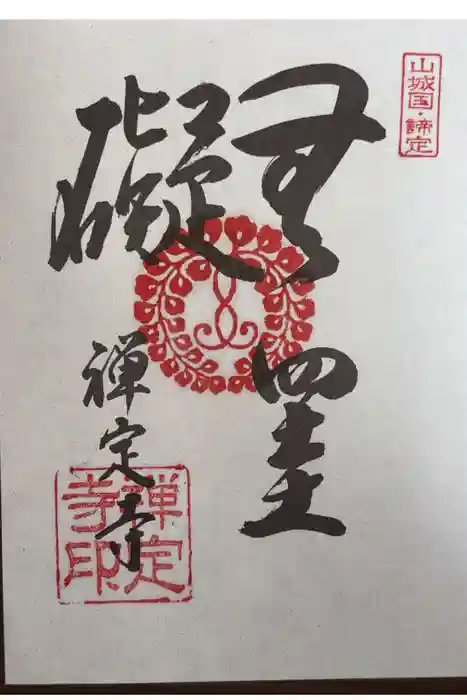 山城国・禅定
無罣
礙
禅定寺
禅定
寺印